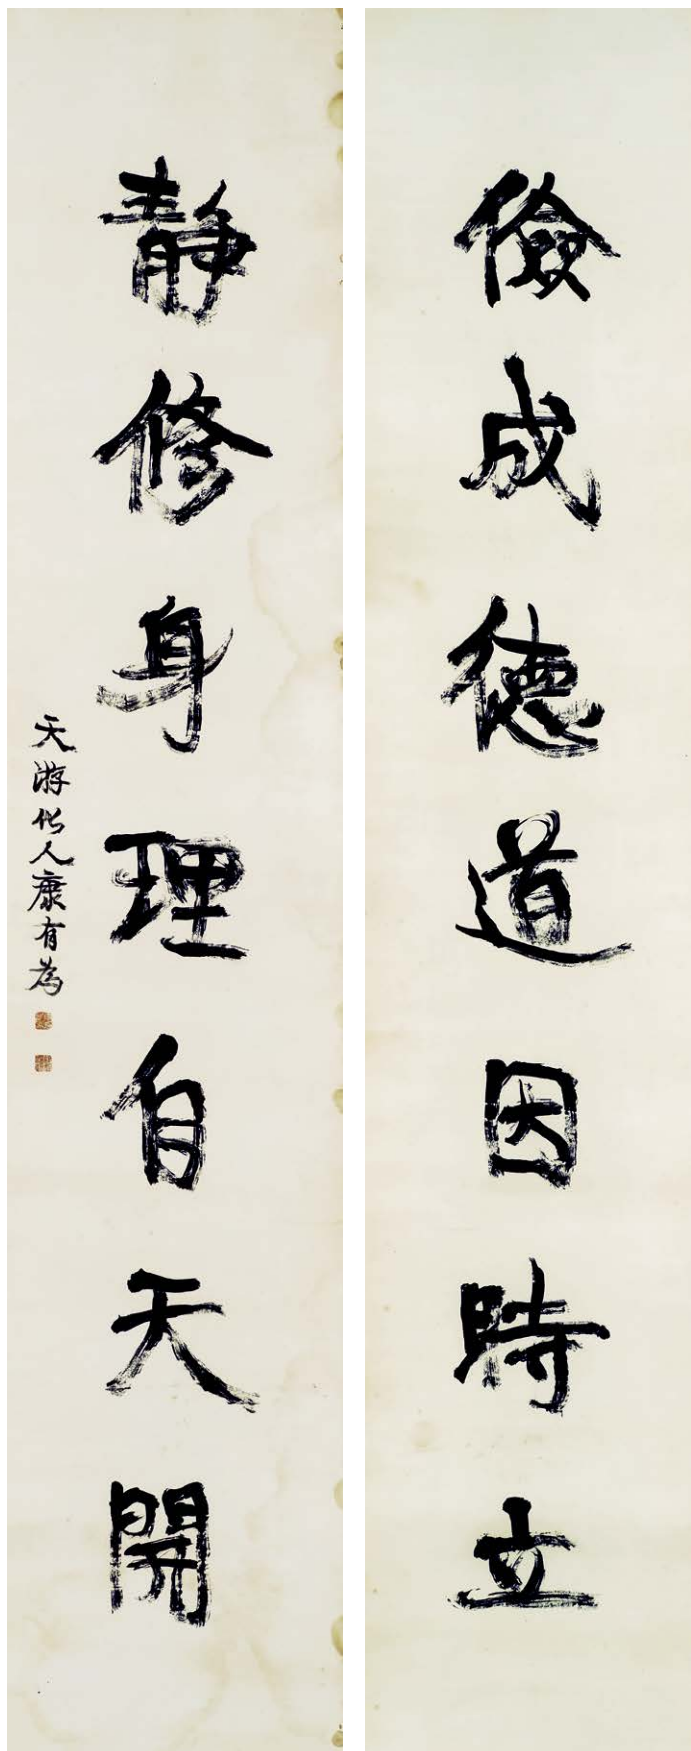 儉成德道因時立
靜修身理自天開
天游化人康有為